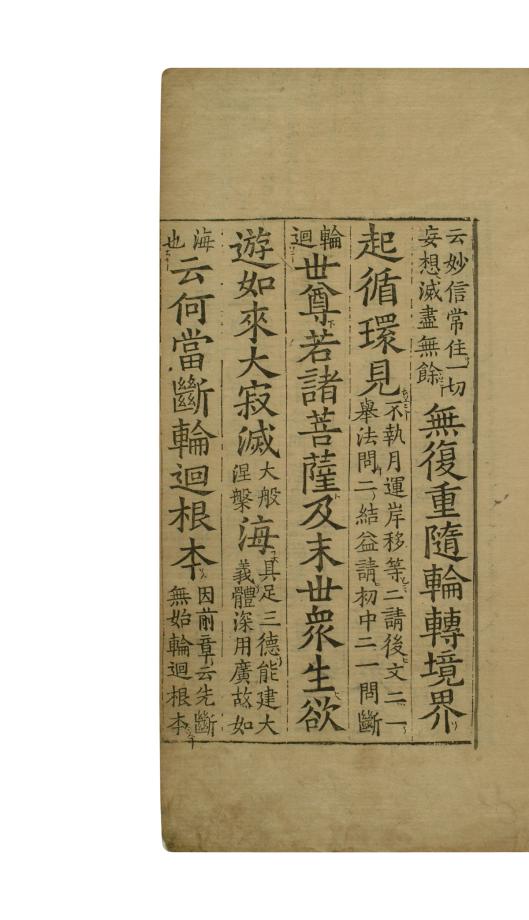 云妙信常住一切妄想滅盡無餘無復重隨輪轉境界
起循環見不執月運岸移等二請後文二一舉法問二結益請初中二一問斷
輪迴世尊若諸菩薩及末世衆生欲
遊如來大寂滅大般涅槃海具足三德能建大義體深用廣故如
海也云何當斷輪迴根本因前章云先斷無始輪迴根本